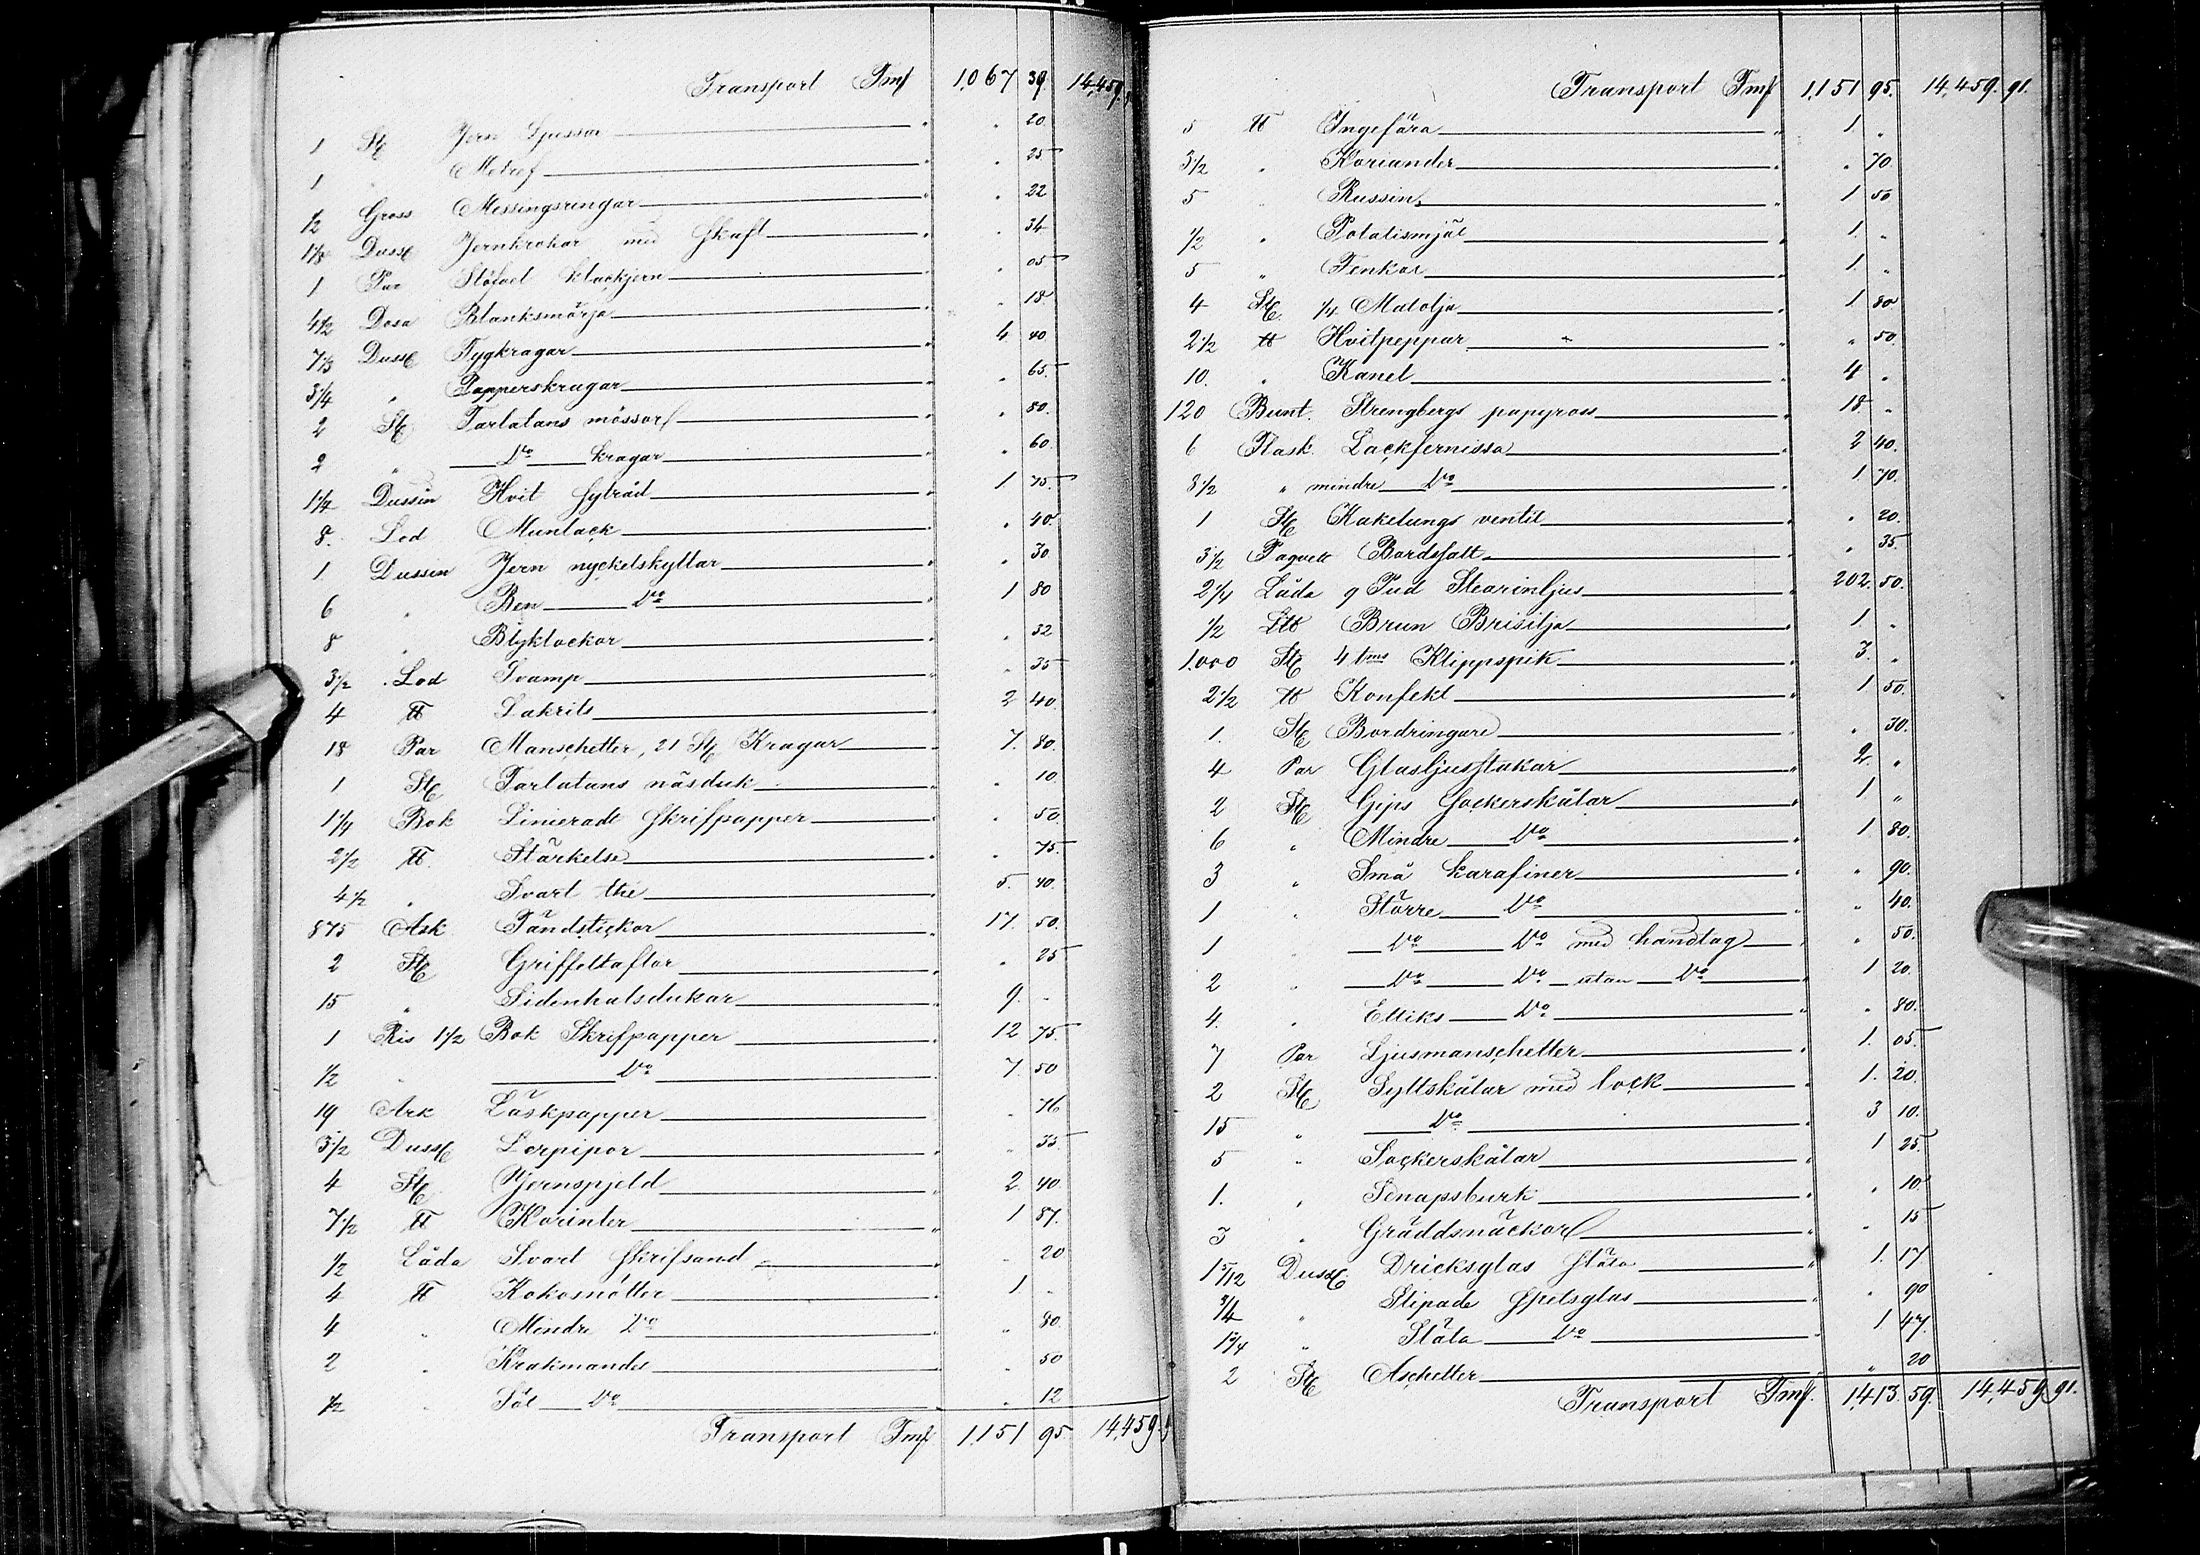 Transport Tmf 1,067 39. 14,459.
1 St Jern Ljussax " " 20
1 " Metref " " 25
1/2 Gross Messingsringar " " 22
1 1/8 Duss Jernkrokar med skaft " " 34
1 Par Stöfvel klackjern " " 05
4 1/2 Dosa Blanksmörja " " 18
7 1/3 Duss Tygkragar " 4 40
3/4 " Papperskragar " " 65.
2 St Tarlatans mössor " " 80.
2 " Do kragar " " 60.
1 1/4 Dussin Hvit sytråd " 1 75.
8. Lod Munlack " " 40.
1 Dussin Jern nyckelskyltar " " 30
6 " Ben Do " 1 80
8 " Blyklockor " " 32
3 1/2 Lod Svamp " " 35
4 ℔ Lakrits " 2 40.
18 Par Manschetter, 21 St Kragar " 7. 80.
1 St Tarlatans näsduk " " 10
1 1/4 Bok Linieradt skrifpapper " " 50.
2 1/2 ℔ Stärkelse " " 75.
4 1/2 " Svart thé " 5. 40.
875 Ask Tändstickor " 17. 50.
2 St Griffeltaflor " " 25
15 " Sidenhalsdukar " 9. "
1 Ris 1 1/2 Bok Skrifpapper " 12 75.
1/2 " Do " 7. 50
19 Ark Läskpapper " " 76
3 1/2 Duss Lerpipor " " 35.
4 St Jernspjeld " 2. 40.
7 1/2 ℔ Korinter " 1 87.
1/2 Låda Svart skrifsand " " 20
4 ℔ Kokosnötter " 1 "
4 " Mindre Do " " 80.
2 " Krakmandel " " 50
1/2 " Söt Do " " 12
Transport Tmf 1,151 95. 14,459.
Transport Tmf 1,151 95. 14,459. 91.
5 ℔ Ingefära " 1 "
3 1/2 " Koriander " " 70.
5 " Russin " 1 50
1/2 " Potatismjöl " 1. "
5 " Fenkor " 1. "
4 St 1/4 Matolja " 1 80
2 1/2 ℔ Hvitpeppar " " 50.
10. " Kanel " 4 "
120 Bunt. Strengbergs papyross 18 "
6 Flask. Lackfernissa " 2 40.
8 1/2 " mindre Do " 1 70.
1 St Kakelungs ventil " " 20.
3 1/2 Paquett Bordssalt " " 35.
2 1/4 Låda 9 Pud Stearinljus " 202. 50.
1/2 L℔ Brun Brisilja " 1. "
1.000 St 4 tms Klippspik " 3. "
2 1/2 ℔ Konfekt " 1 50.
1. St Bordringare " " 30.
4 Par Glasljusstakar " 2. "
2 St Gips sockerskålar " 1 "
6 " Mindre Do " 1 80.
3 " Små karafiner " " 90.
1 " Större Do " " 40.
1 " Do Do med handtag " " 50.
2 " Do Do utan Do " 1 20.
4. " Ettiks Do " " 80.
7 Par Ljusmanschetter " 1. 05.
2 St Syltskålar med lock " 1. 20.
15 " Do " 3 10.
5 " Sockerskålar " 1 25.
1. " Senapsburk " " 10
3 " Gräddsnäckor " " 15
1 5/12 Duss. Dricksglas släta " 1. 17
3/4 " Slipade spetsglas " " 90
1 3/4 " Släta Do " 1 47.
2 St Aschetter " " 20
Transport Tmf. 1,413. 59. 14,459 91.